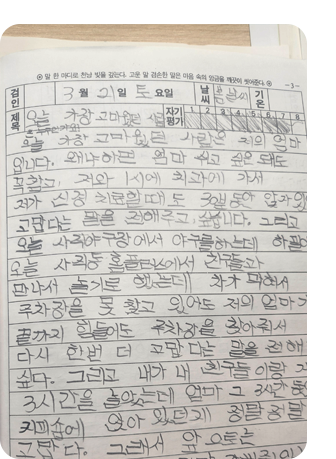 ⊙ 말 한 마디로 천냥 빚을 갚는다. 고운 말 겸손한 말은 마음 속의 앙금을 깨끗이 씻어준다. ⊙ -3-
검인 3월 21일 토요일 날씨 봄날씨 기온
제목 오늘 가장 고마웠던 사람 자기평가 1 2 3 4 5 6 7 8
오늘 가장 고마웠던 사람은 저의 엄마
입니다. 왜냐하면 엄마
하고, 저와 1시에 치과에 가서
제가 신경 치료할 때도 30분 동안
고맙다는 말을 전해주고 싶습니다. 그리고
오늘 사직야구장에서 야구를 하는데 하필
오늘 사직동 홈플러스에서 친구들과
만나서 놀기로 했는데 차가 막혀서
주차장을 못 찾고 있어도 저의 엄마가
끝까지 힘들어도 주차장을 찾아줘서
다시 한번 더 고맙다는 말을 전해
싶다. 그리고 내가 내 친구들이랑
3시간을 놀았는데 엄마 그 3시간 동
커피숍에 앉아 있던게 정말 정말
고맙다. 그래서 앞으로는